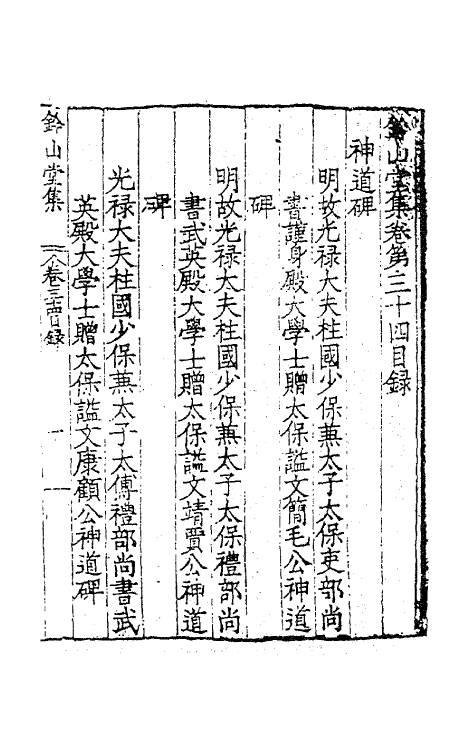 鈐山堂集卷第三十四目録
神道碑
明故光禄大夫柱國少保兼太子太保吏部尚
書謹身殿大學士贈太保謚文簡毛公神道
碑
明故光禄大夫柱國少保兼太子太保禮部尚
書武英殿大學士贈太保謚文靖賈公神道
碑
光禄大夫柱國少保兼太子太傅禮部尚書武
英殿大學士贈太保謚文康顧公神道碑
鈐山堂集
卷三十四目録
一